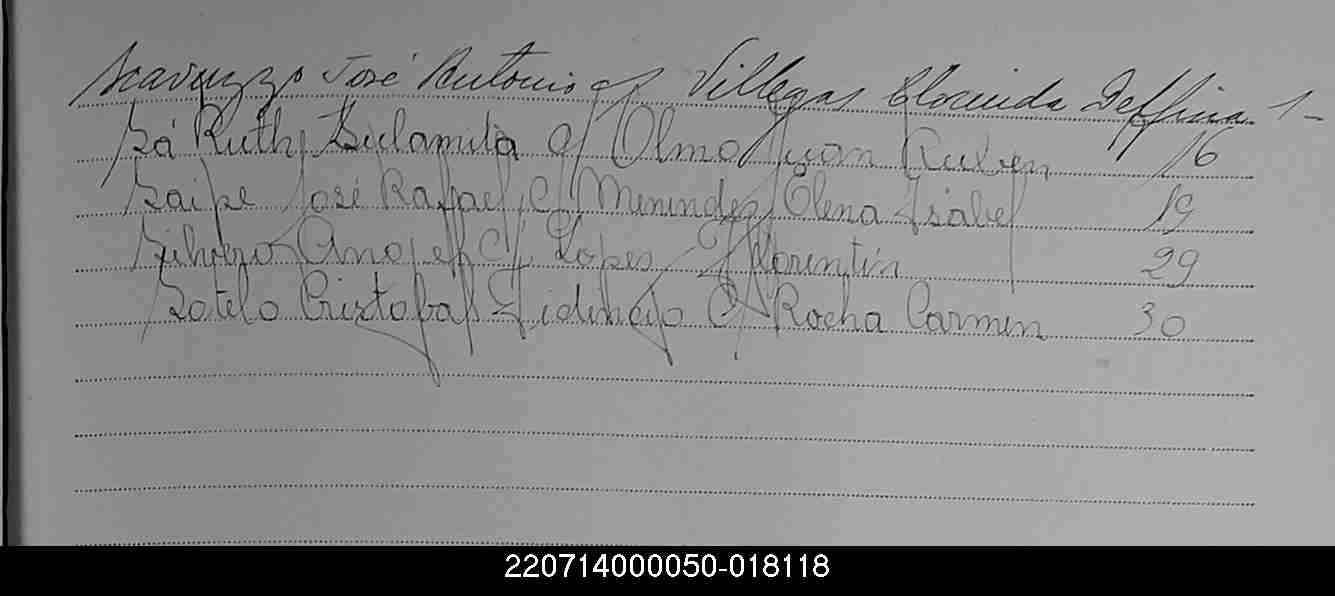 Scavuzzo José Antonio c/ Villegas Clorinda Delfina 1-
Sá Ruth Sulamita c/ Olmo Juan Ruben 16
Saipe José Rafael c/ Menendez Elena Isabel 19
Silvero Angel c/ Lopes Florentin 29
Sotelo Cristobal c/ Rocha Carmen 30
220714000050-018118